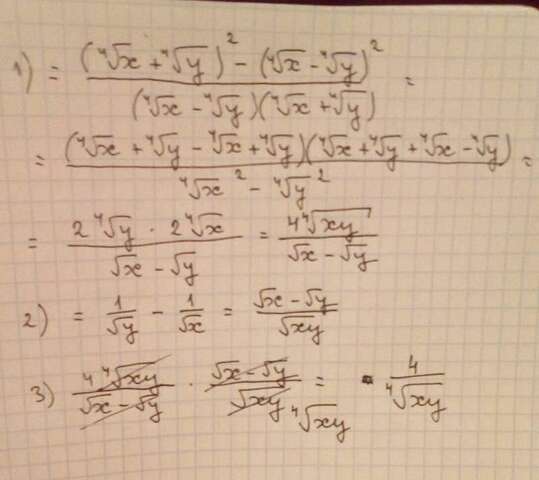 1) = ((⁴√x + ⁴√y)² − (⁴√x − ⁴√y)²) / ((⁴√x − ⁴√y)(⁴√x + ⁴√y)) =
= ((⁴√x + ⁴√y − ⁴√x + ⁴√y)(⁴√x + ⁴√y + ⁴√x − ⁴√y)) / (⁴√x² − ⁴√y²) =
= (2⁴√y · 2⁴√x) / (√x − √y) = 4⁴√xy / (√x − √y)
2) = 1/√y − 1/√x = (√x − √y) / √xy
3) 4⁴√xy / (√x − √y) · (√x − √y) / √xy ⁴√xy = 4 / ⁴√xy